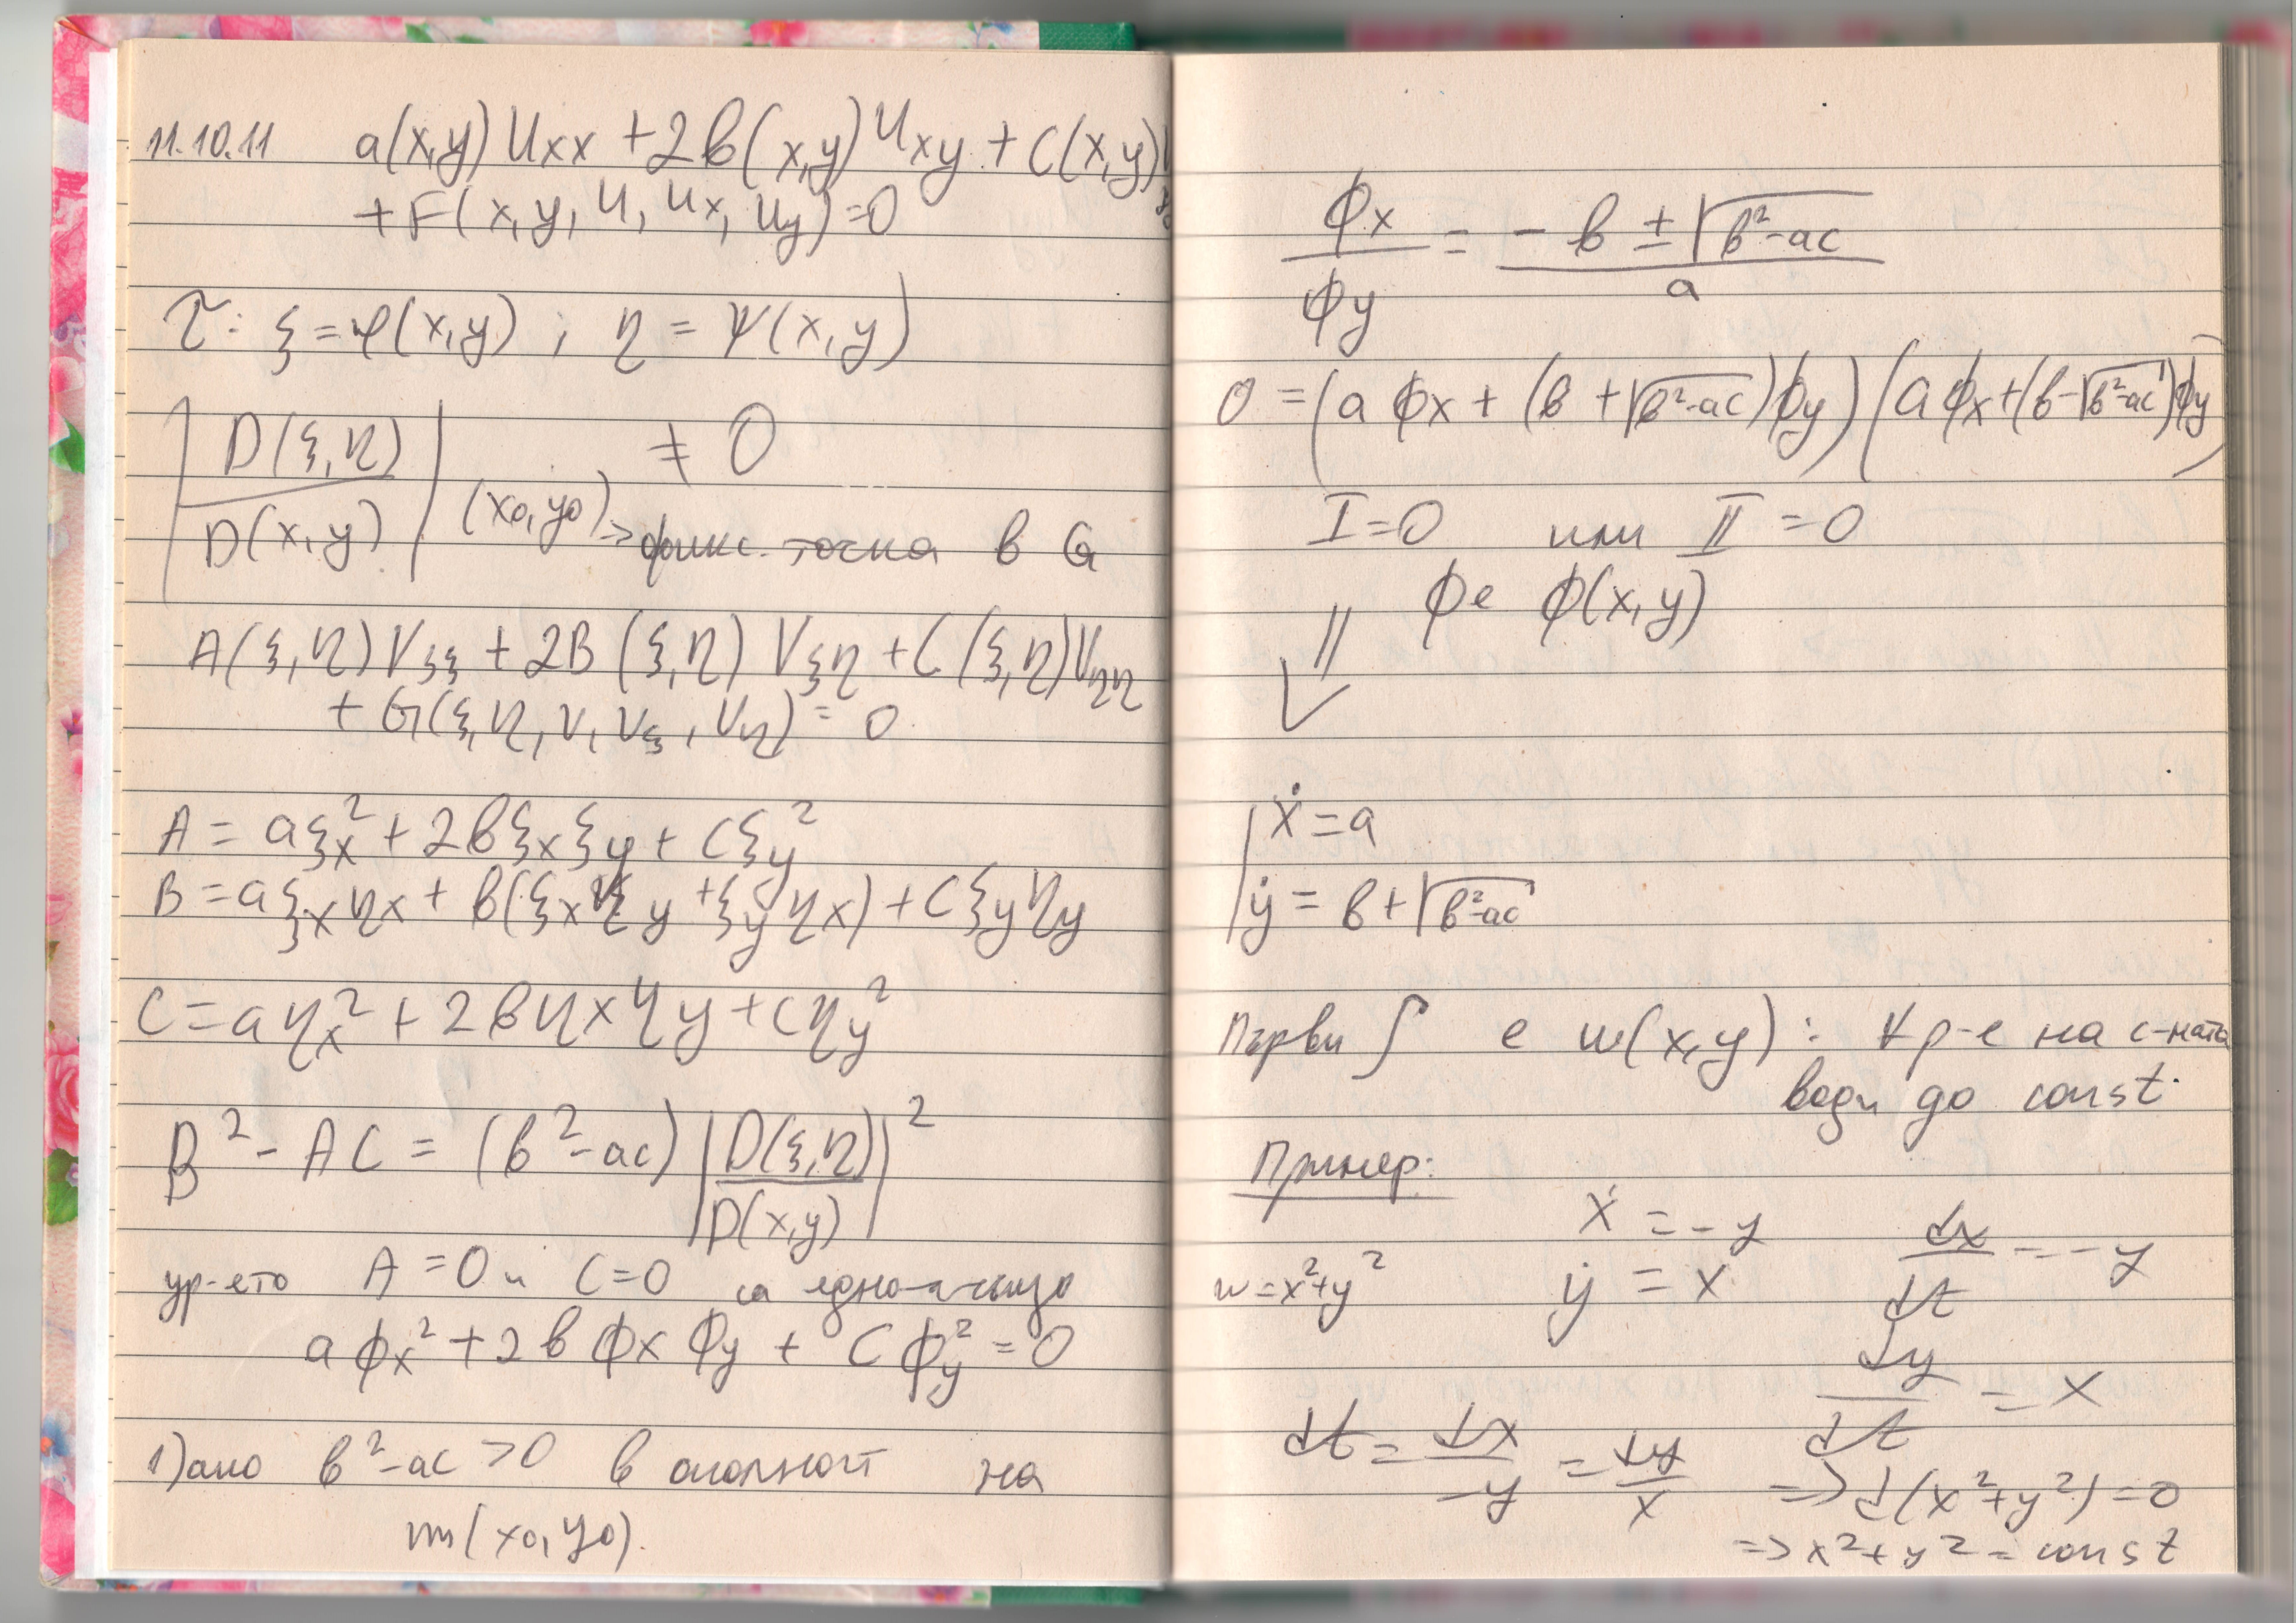 11.10.11 a(x,y) Uxx + 2в(x,y) Uxy + C(x,y)
+ F(x, y, U, Ux, Uy) = 0
τ: ξ = φ(x,y) ; η = ψ(x,y)
|D(ξ,η)/D(x,y)| (x0,y0) ≠ 0
=> фикс. точка в G
A(ξ,η) Vξξ + 2B(ξ,η) Vξη + C(ξ,η) Vηη
+ G(ξ,η, V, Vξ, Vη) = 0
A = aξx² + 2вξxξy + cξy²
B = aξxηx + в(ξxηy + ξyηx) + cξyηy
C = aηx² + 2вηxηy + cηy²
B² - AC = (в² - ac) |D(ξ,η)/D(x,y)|²
ур-ето A = 0 и C = 0 са
aϕx² + 2вϕxϕy + Cϕy² = 0
1) ако в² - ac > 0 в околност на
m(x0,y0).
ϕx/ϕy = (- в ± √(в²-ac))/a
0 = (aϕx + (в + √(в²-ac))ϕy)(aϕx + (в - √(в²-ac))ϕy)
I = 0 или II = 0
ϕ е ϕ(x,y)
⇓
ẋ = a
ẏ = в + √(в²-ac)
Първи ∫ е w(x,y) : ∀ р-е на с-мата
води до const.
Пример:
ẋ = -y dx/dt = -y
w = x²+y² ẏ = x
dy/dt = x
dt = dx/-y = dy/x => d(x²+y²) = 0
=> x²+y² = const